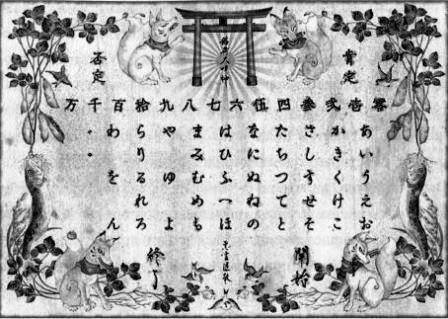 肯定
否定
零壱弐参四伍六七八九拾百千万
あいうえお
かきくけこ
さしすせそ
たちつてと
なにぬねの
はひふへほ
まみむめも
やゆよ
らりるれろ
わをん
開始
終了